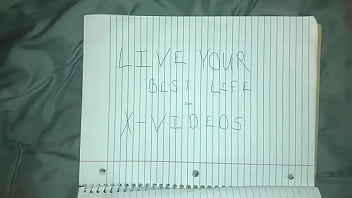 LIVE YOUR
BEST LIFE
on
X-VIDEOS